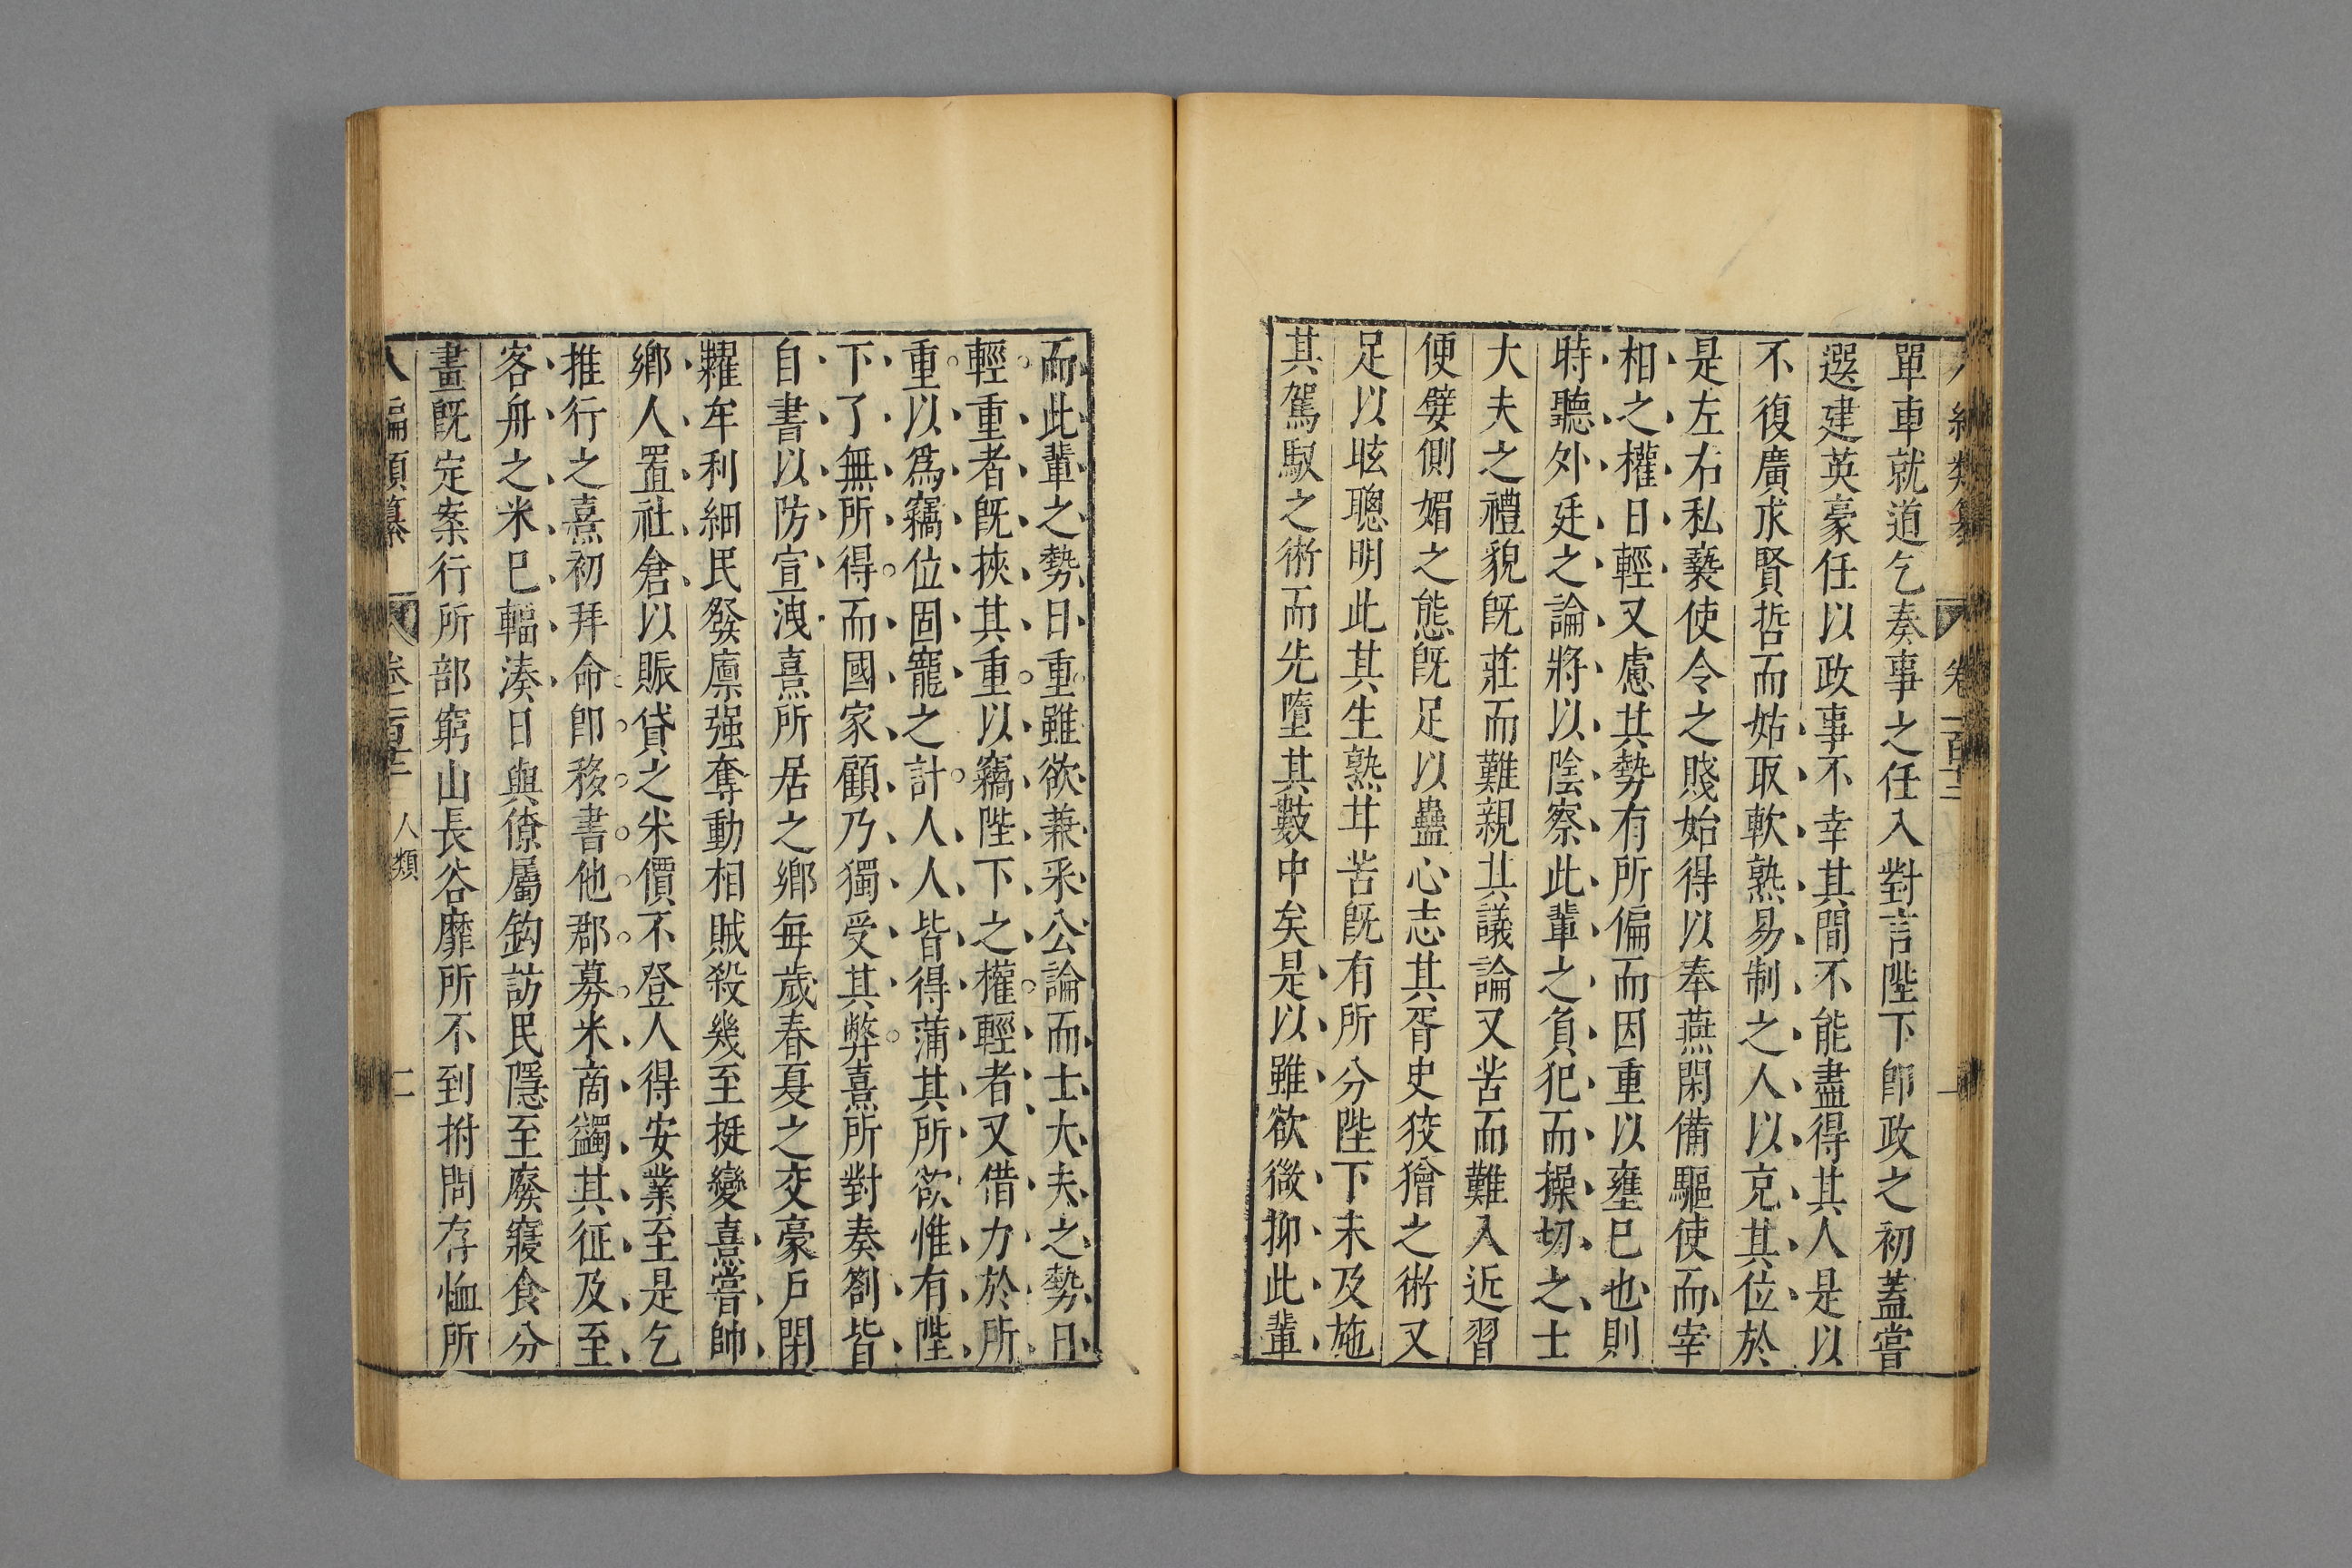 單車就道乞奏事之任入對言陛下卽政之初蓋嘗
選建英豪任以政事不幸其間不能盡得其人是以
不復廣求賢哲而姑取軟熟易制之人以克其位於
是左右私褻使令之賤始得以奉燕閑備驅使而宰
相之權日輕又慮其勢有所偏而因重以壅已也則
時聽外廷之論將以陰察此輩之負犯而操切之士
大夫之禮貌旣莊而難親其議論又苦而難入近習
便嬖側媚之態旣足以蠱心志其胥史狡獪之術又
足以眩聰明此其生熟甘苦旣有所分陛下未及施
其駕馭之術而先墮其數中矣是以雖欲微抑此輩
而此輩之勢日重雖欲兼采公論而士大夫之勢日
輕重者旣挾其重以竊陛下之權輕者又借力於所
重以爲竊位固寵之計人人皆得蒲其所欲惟有陛
下了無所得而國家顧乃獨受其弊熹所對奏劄皆
自書以防宣洩熹所居之鄉每歲春夏之交豪戶閉
糶牟利細民發廪强奪動相賊殺幾至挺變熹嘗帥
鄉人置社倉以賑貸之米價不登人得安業至是乞
推行之熹初拜命卽移書他郡募米商蠲其征及至
客舟之米巳輻湊日與僚屬鈎訪民隱至廢寢食分
畫旣定案行所部窮山長谷靡所不到拊問存恤所
卷二百十二 人類 二